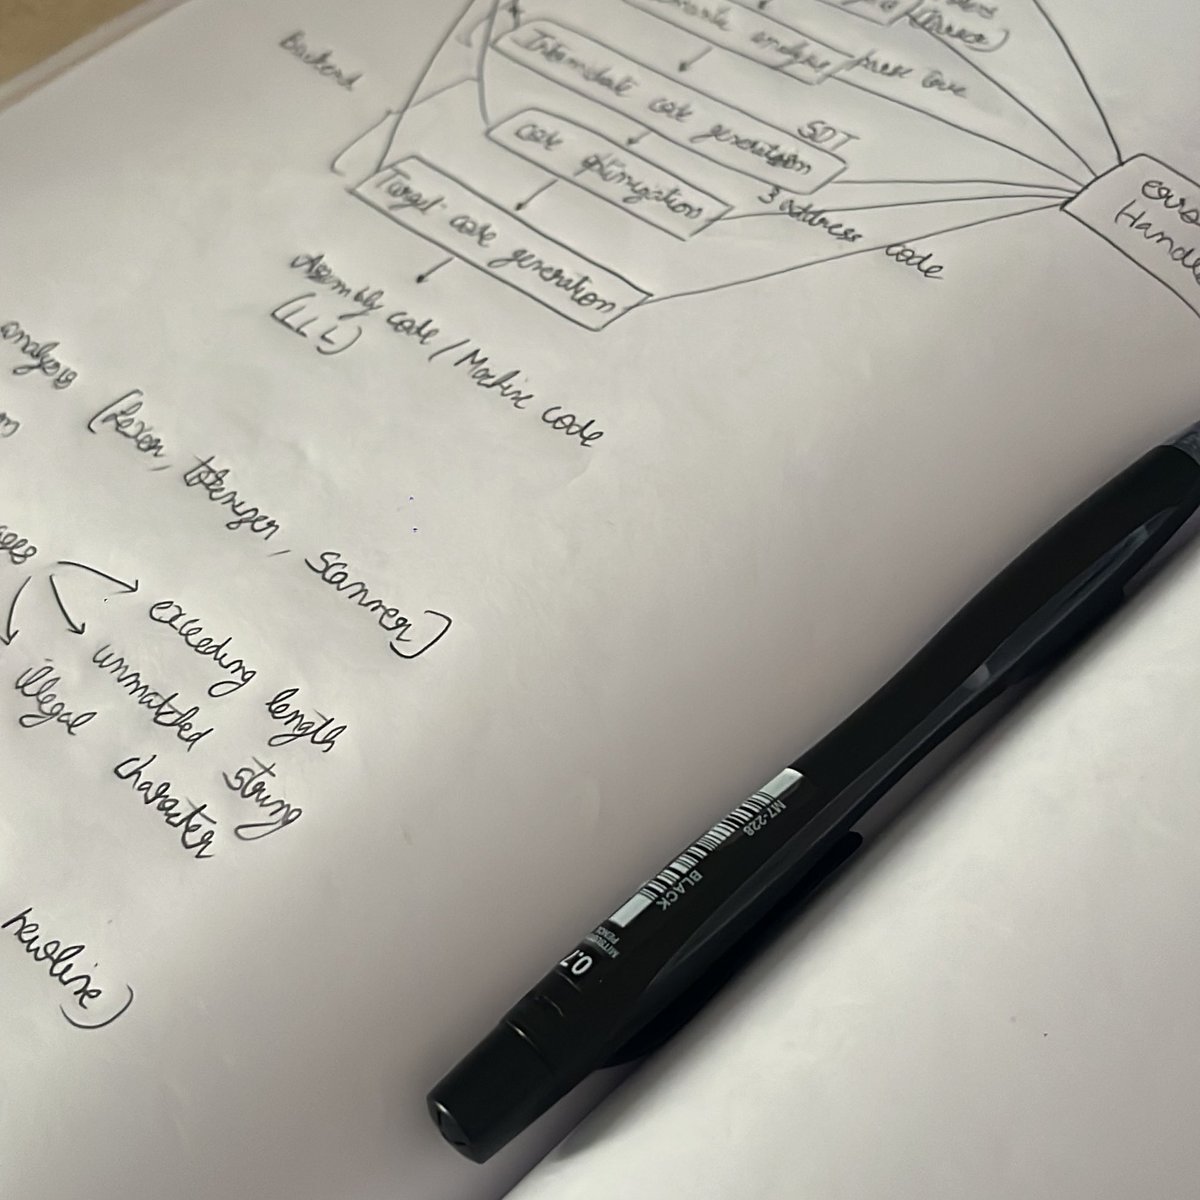 Backend
analysis / parse tree
Intermediate code generation
SDT
code optimization
3 address code
Target code generation
Error
Handle
Assembly code / Machine code
(LLL)
analysis [Lexer, tokenizer, scanner]
exceeding length
unmatched string
illegal character
newline)
M7-228
BLACK
0.7